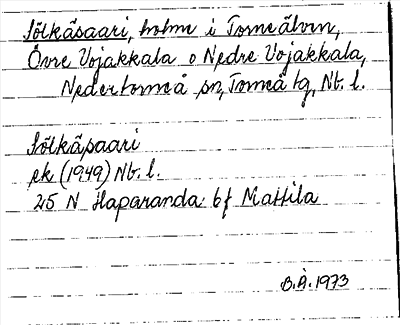 Sölkäsaari, holme i Torneälven,
Övre Vojakkala o Nedre Vojakkala,
Nedertorneå sn, Torneå tg, Nb. l.
Sölkäsaari
ek (1949) Nb. l.
25 N Haparanda bf Mattila
B.Å. 1973